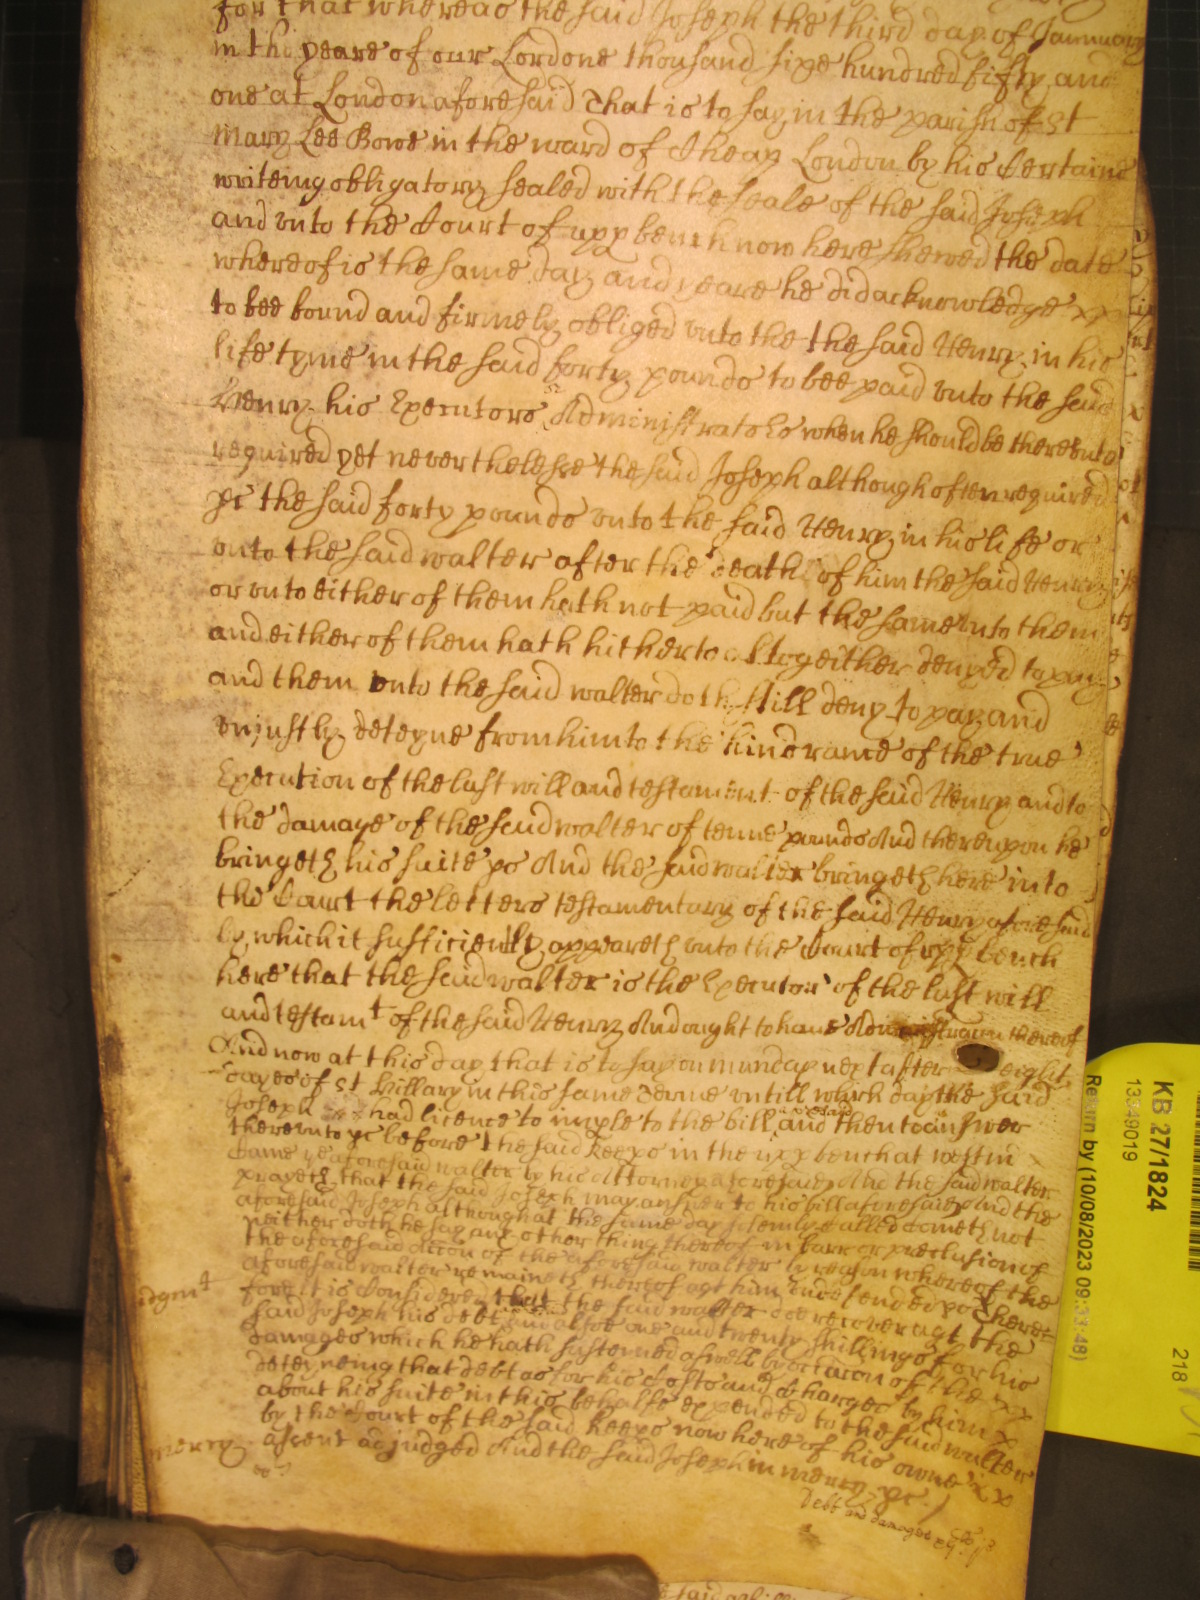 for that whereas the said Joseph the third day of Jannuary
in the yeare of our Lord one thousand sixe hundred fifty and
one at London aforesaid that is to say in the parish of St
Mary Lee Bowe in the ward of Cheap London by his Certaine
writeing obligatory sealed with the seale of the said Joseph
and unto the Court of upp bench now here shewed the date
whereof is the same day and yeare he did acknowledge xx
to bee bound and firmely obliged unto the the said Henry in his
life tyme in the said forty pounds to bee paid unto the said
Henry his Executors or Administrators when he should be thereunto
required yet neverthelesse the said Joseph although often required
xc the said forty pounds unto the said Henry in his life or
unto the said walter after the death of him the said Henry
or unto either of them hath not paid but the same unto them
and either of them hath hitherto altogeither denyed to pay
and them unto the said walter doth still deny to pay and
uniustly deteyne from him to the hindrance of the true
Execution of the last will and testament of the said Henry and to
the damage of the said walter of tenne pounds And thereupon he
bringeth his suite xc And the said walter bringeth here into
the Court the letters testamentary of the said Henry aforesaid
by which it sufficiently appeareth unto the Court of upp bench
here that the said walter is the Executor of the last will
and testamt of the said Henry And ought to have Administracon thereof
And now at this day that is to say on munday next after eight
dayes of St Hillary in this same Terme untill which day the said
Joseph had licence to imple to the bill aforesaid and then to answer
thereunto xc before the said Keeps in the upp bench at westm
Came aforesaid walter by his Attorney aforesaid And the said walter
prayeth that the said Joseph may answer to his bill aforesaid And the
aforesaid Joseph although at the same day solemly called cometh not
neither doth he say any other thing thereof in barr or preclusion of
the aforesaid Accon of the aforesaid walter by reason whereof the
aforesaid walter remaineth thereof agt him undefended xc There
Judgmt
fore It is Considered that the said walter doe recover agt the
said Joseph his debt aforesaid and alsoe one and twenty shillings for his
damages which he hath susteined aswell by occacon of the xx
deteyneing that debt as for his Costs and Charges by him x
about his suite in this behalfe expended to the said walter
by the Court of the said Keeps now here of his owne xx
mercy
assent adjudged And the said Joseph in mercy xc
Debt and damages
KB 27/1824
13349019
Return by (10/08/2023 09:33:48)
218